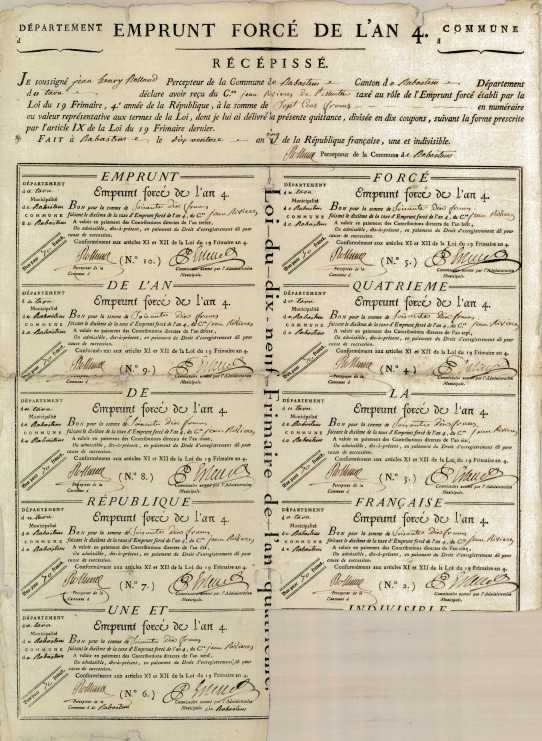 DÉPARTEMENT
d
EMPRUNT FORCÉ DE L'AN 4.
COMMUNE
RÉCÉPISSÉ.
JE soussigné jean henry Percepteur de la Commune de Rabastens Canton de Rabastens Département
d u tarn déclare avoir reçu du C.en jean Rivieres taxé au rôle de l'Emprunt forcé établi par la
Loi du 19 Frimaire, 4.e année de la République, à la somme de Sept Cens francs en numéraire
ou valeur représentative aux termes de la Loi, dont je lui ai délivré la présente quittance, divisée en dix coupons, suivant la forme prescrite
par l'article IX de la Loi du 19 Frimaire dernier.
FAIT à Rabastens le dix ventose an de la République française, une et indivisible.
Percepteur de la Commune de Rabastens
Loi du dix-neuf Frimaire de l'an quatrième.
EMPRUNT
DÉPARTEMENT
d u tarn
Municipalité
de Rabastens
COMMUNE
de Rabastens
Emprunt forcé de l'an 4.
BON pour la somme de Soixante dix francs
faisant le dixième de la taxe d'Emprunt forcé de l'an 4, du C.en jean Rivieres
A valoir en paiement des Contributions directes de l'an
Ou admissible, dès-à-présent, en paiement du Droit d'enregistrement dû pour
cause de succession.
Conformément aux articles XI et XII de la Loi du 19 Frimaire an 4.
Bon pour 70 francs
(N.º 10.)
Percepteur de la
Commune d
Commissaire nommé par l'Administration
Municipale.
FORCÉ
DÉPARTEMENT
d u tarn
Municipalité
de Rabastens
COMMUNE
de Rabastens
Emprunt forcé de l'an 4.
BON pour la somme de Soixante dix francs
faisant le dixième de la taxe d'Emprunt forcé de l'an 4, du C.en jean Rivieres
A valoir en paiement des Contributions directes de l'an
Ou admissible, dès-à-présent, en paiement du Droit d'enregistrement dû pour
cause de succession.
Conformément aux articles XI et XII de la Loi du 19 Frimaire an 4.
Bon pour 70 francs
(N.º 5.)
Percepteur de la
Commune d
Commissaire nommé par l'Administration
Municipale.
DE L'AN
DÉPARTEMENT
d u tarn
Municipalité
de Rabastens
COMMUNE
de Rabastens
Emprunt forcé de l'an 4.
BON pour la somme de Soixante dix francs
faisant le dixième de la taxe d'Emprunt forcé de l'an 4, du C.en jean Rivieres
A valoir en paiement des Contributions directes de l'an
Ou admissible, dès-à-présent, en paiement du Droit d'enregistrement dû pour
cause de succession.
Conformément aux articles XI et XII de la Loi du 19 Frimaire an 4.
Bon pour 70 francs
(N.º 9.)
Percepteur de la
Commune d
Commissaire nommé par l'Administration
Municipale.
QUATRIEME
DÉPARTEMENT
d u tarn
Municipalité
de Rabastens
COMMUNE
de Rabastens
Emprunt forcé de l'an 4.
BON pour la somme de Soixante dix francs
faisant le dixième de la taxe d'Emprunt forcé de l'an 4, du C.en jean Rivieres
A valoir en paiement des Contributions directes de l'an
Ou admissible, dès-à-présent, en paiement du Droit d'enregistrement dû pour
cause de succession.
Conformément aux articles XI et XII de la Loi du 19 Frimaire an 4.
Bon pour 70 francs
(N.º 4.)
Percepteur de la
Commune d
Commissaire nommé par l'Administration
Municipale.
DE
DÉPARTEMENT
d u tarn
Municipalité
de Rabastens
COMMUNE
de Rabastens
Emprunt forcé de l'an 4.
BON pour la somme de Soixante dix francs
faisant le dixième de la taxe d'Emprunt forcé de l'an 4, du C.en jean Rivieres
A valoir en paiement des Contributions directes de l'an
Ou admissible, dès-à-présent, en paiement du Droit d'enregistrement dû pour
cause de succession.
Conformément aux articles XI et XII de la Loi du 19 Frimaire an 4.
Bon pour 70 francs
(N.º 8.)
Percepteur de la
Commune d
Commissaire nommé par l'Administration
Municipale.
LA
DÉPARTEMENT
d u tarn
Municipalité
de Rabastens
COMMUNE
de Rabastens
Emprunt forcé de l'an 4.
BON pour la somme de Soixante dix francs
faisant le dixième de la taxe d'Emprunt forcé de l'an 4, du C.en jean Rivieres
A valoir en paiement des Contributions directes de l'an
Ou admissible, dès-à-présent, en paiement du Droit d'enregistrement dû pour
cause de succession.
Conformément aux articles XI et XII de la Loi du 19 Frimaire an 4.
Bon pour 70 francs
(N.º 3.)
Percepteur de la
Commune d
Commissaire nommé par l'Administration
Municipale.
RÉPUBLIQUE
DÉPARTEMENT
d u tarn
Municipalité
de Rabastens
COMMUNE
de Rabastens
Emprunt forcé de l'an 4.
BON pour la somme de Soixante dix francs
faisant le dixième de la taxe d'Emprunt forcé de l'an 4, du C.en jean Rivieres
A valoir en paiement des Contributions directes de l'an
Ou admissible, dès-à-présent, en paiement du Droit d'enregistrement dû pour
cause de succession.
Conformément aux articles XI et XII de la Loi du 19 Frimaire an 4.
Bon pour 70 francs
(N.º 7.)
Percepteur de la
Commune d
Commissaire nommé par l'Administration
Municipale.
FRANÇAISE
DÉPARTEMENT
d u tarn
Municipalité
de Rabastens
COMMUNE
de Rabastens
Emprunt forcé de l'an 4.
BON pour la somme de Soixante dix francs
faisant le dixième de la taxe d'Emprunt forcé de l'an 4, du C.en jean Rivieres
A valoir en paiement des Contributions directes de l'an
Ou admissible, dès-à-présent, en paiement du Droit d'enregistrement dû pour
cause de succession.
Conformément aux articles XI et XII de la Loi du 19 Frimaire an 4.
Bon pour 70 francs
(N.º 2.)
Percepteur de la
Commune d
Commissaire nommé par l'Administration
Municipale.
UNE ET
DÉPARTEMENT
d u tarn
Municipalité
de Rabastens
COMMUNE
de Rabastens
Emprunt forcé de l'an 4.
BON pour la somme de Soixante dix francs
faisant le dixième de la taxe d'Emprunt forcé de l'an 4, du C.en jean Rivieres
A valoir en paiement des Contributions directes de l'an
Ou admissible, dès-à-présent, en paiement du Droit d'enregistrement dû pour
cause de succession.
Conformément aux articles XI et XII de la Loi du 19 Frimaire an 4.
Bon pour 70 francs
(N.º 6.)
Percepteur de la
Commune de Rabastens
Commissaire nommé par l'Administration
Municipale de Rabastens
INDIVISIBLE